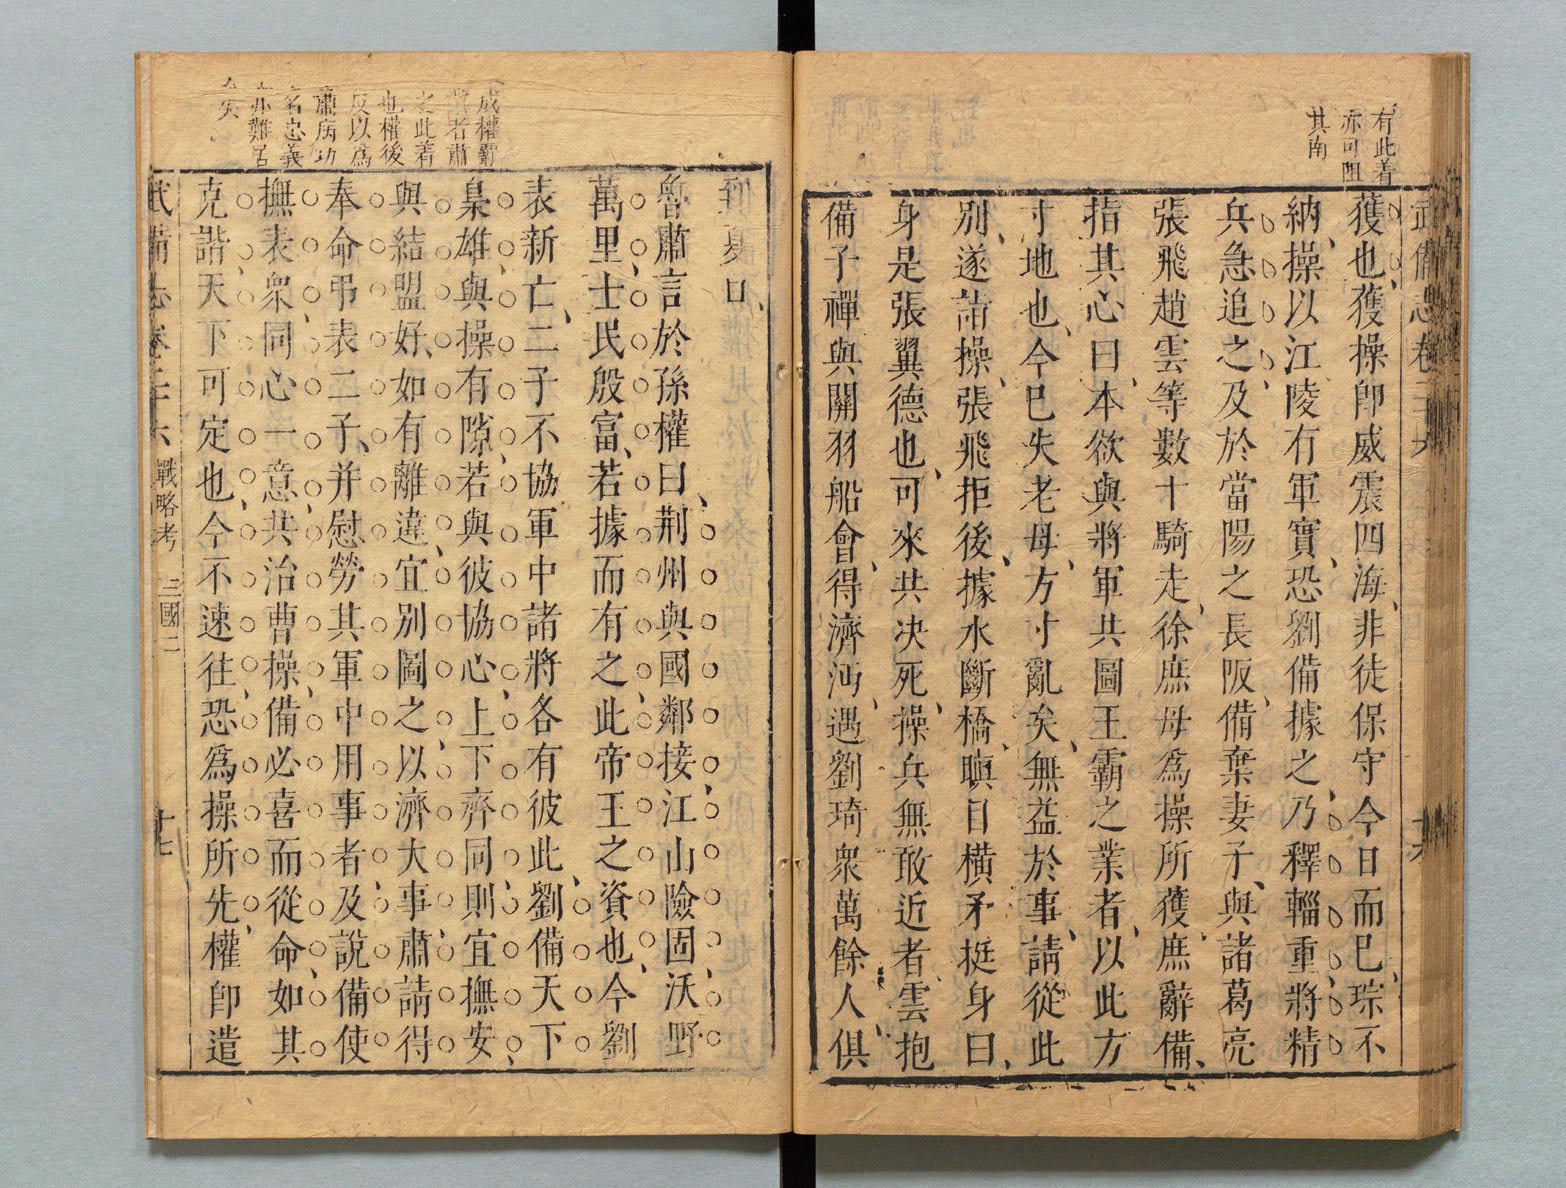 有此着
亦可阻
其南
武備志卷二十六
獲也獲操卽威震四海、非徒保守今日而已、琮不
納、操以江陵有軍實、恐劉備據之、乃釋輜重、將精
兵急追之、及於當陽之長阪、備棄妻子、與諸葛亮
張飛趙雲等數十騎走、徐庶母爲操所獲、庶辭備、
指其心曰、本欲與將軍共圖王霸之業者、以此方
寸地也、今已失老母、方寸亂矣、無益於事、請從此
別、遂詣操、張飛拒後、據水斷橋、瞋目橫矛挺身曰、
身是張翼德也、可來共決死、操兵無敢近者、雲抱
備子禪與關羽船會、得濟沔、遇劉琦衆萬餘人、俱
成權霸
業者肅
之此着
也權後
反以爲
肅病功
名忠義
亦難言
矣
夏口、
魯肅言於孫權曰、荆州與國鄰接、江山險固、沃野
萬里、士民殷富、若據而有之、此帝王之資也、今劉
表新亡、二子不協、軍中諸將各有彼此、劉備天下
梟雄、與操有隙、若與彼協心上下齊同、則宜撫安、
與結盟好、如有離違、宜別圖之、以濟大事、肅請得
奉命弔表二子、并慰勞其軍中用事者、及說備使
撫表衆、同心一意、共治曹操、備必喜而從命、如其
克諧、天下可定也、今不速往、恐爲操所先、權卽遣
武備志卷二十六 戰略考 三國二 十七